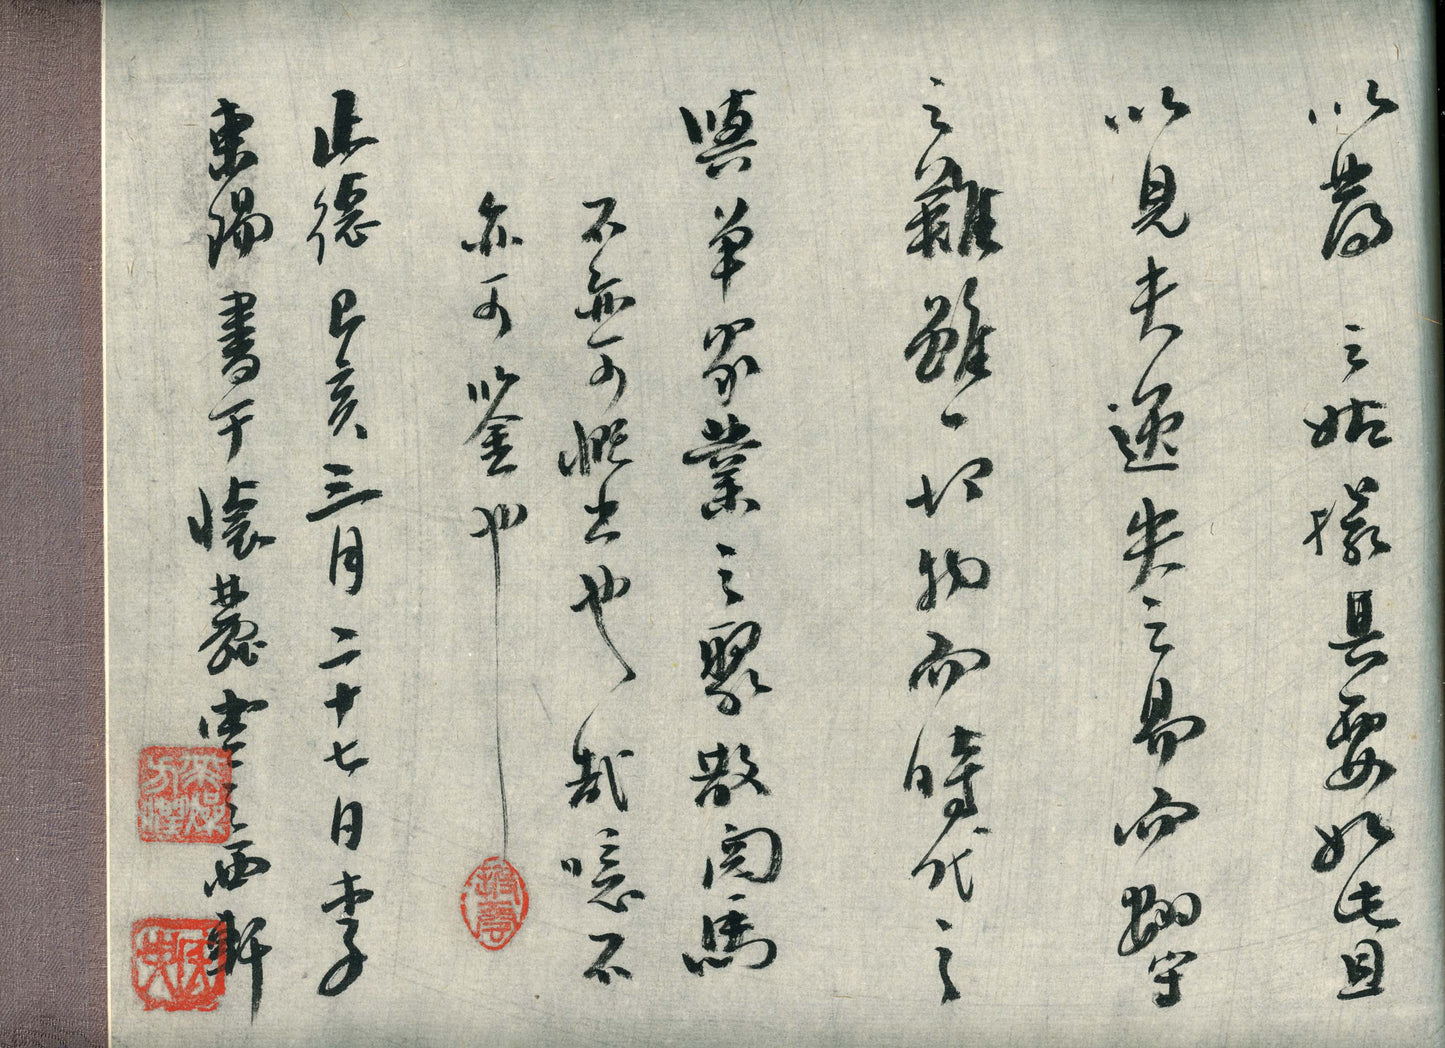 以若之姑撮其要如此且
以見夫逆失之易而難守
之難雖一切物而時代之
興革家業之聚散関焉
不亦可慨也也哉噫不
亦可以鉴也
正德己亥三月二十七日李
東陽書于懷麓堂之西軒